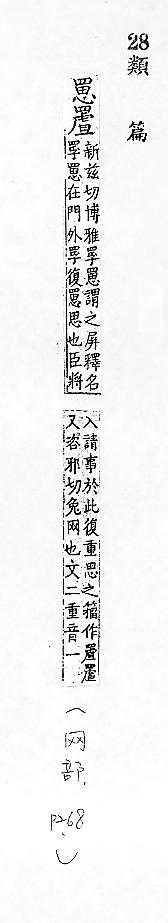 28
類篇
罳𦋺
新兹切博雅罘罳謂之屏釋名
罘罳在門外罘復罳思也臣將
入請事於此復重思之籀作𦋺𦋺
又咨邪切兔网也文二重音一
(网部.
P268)